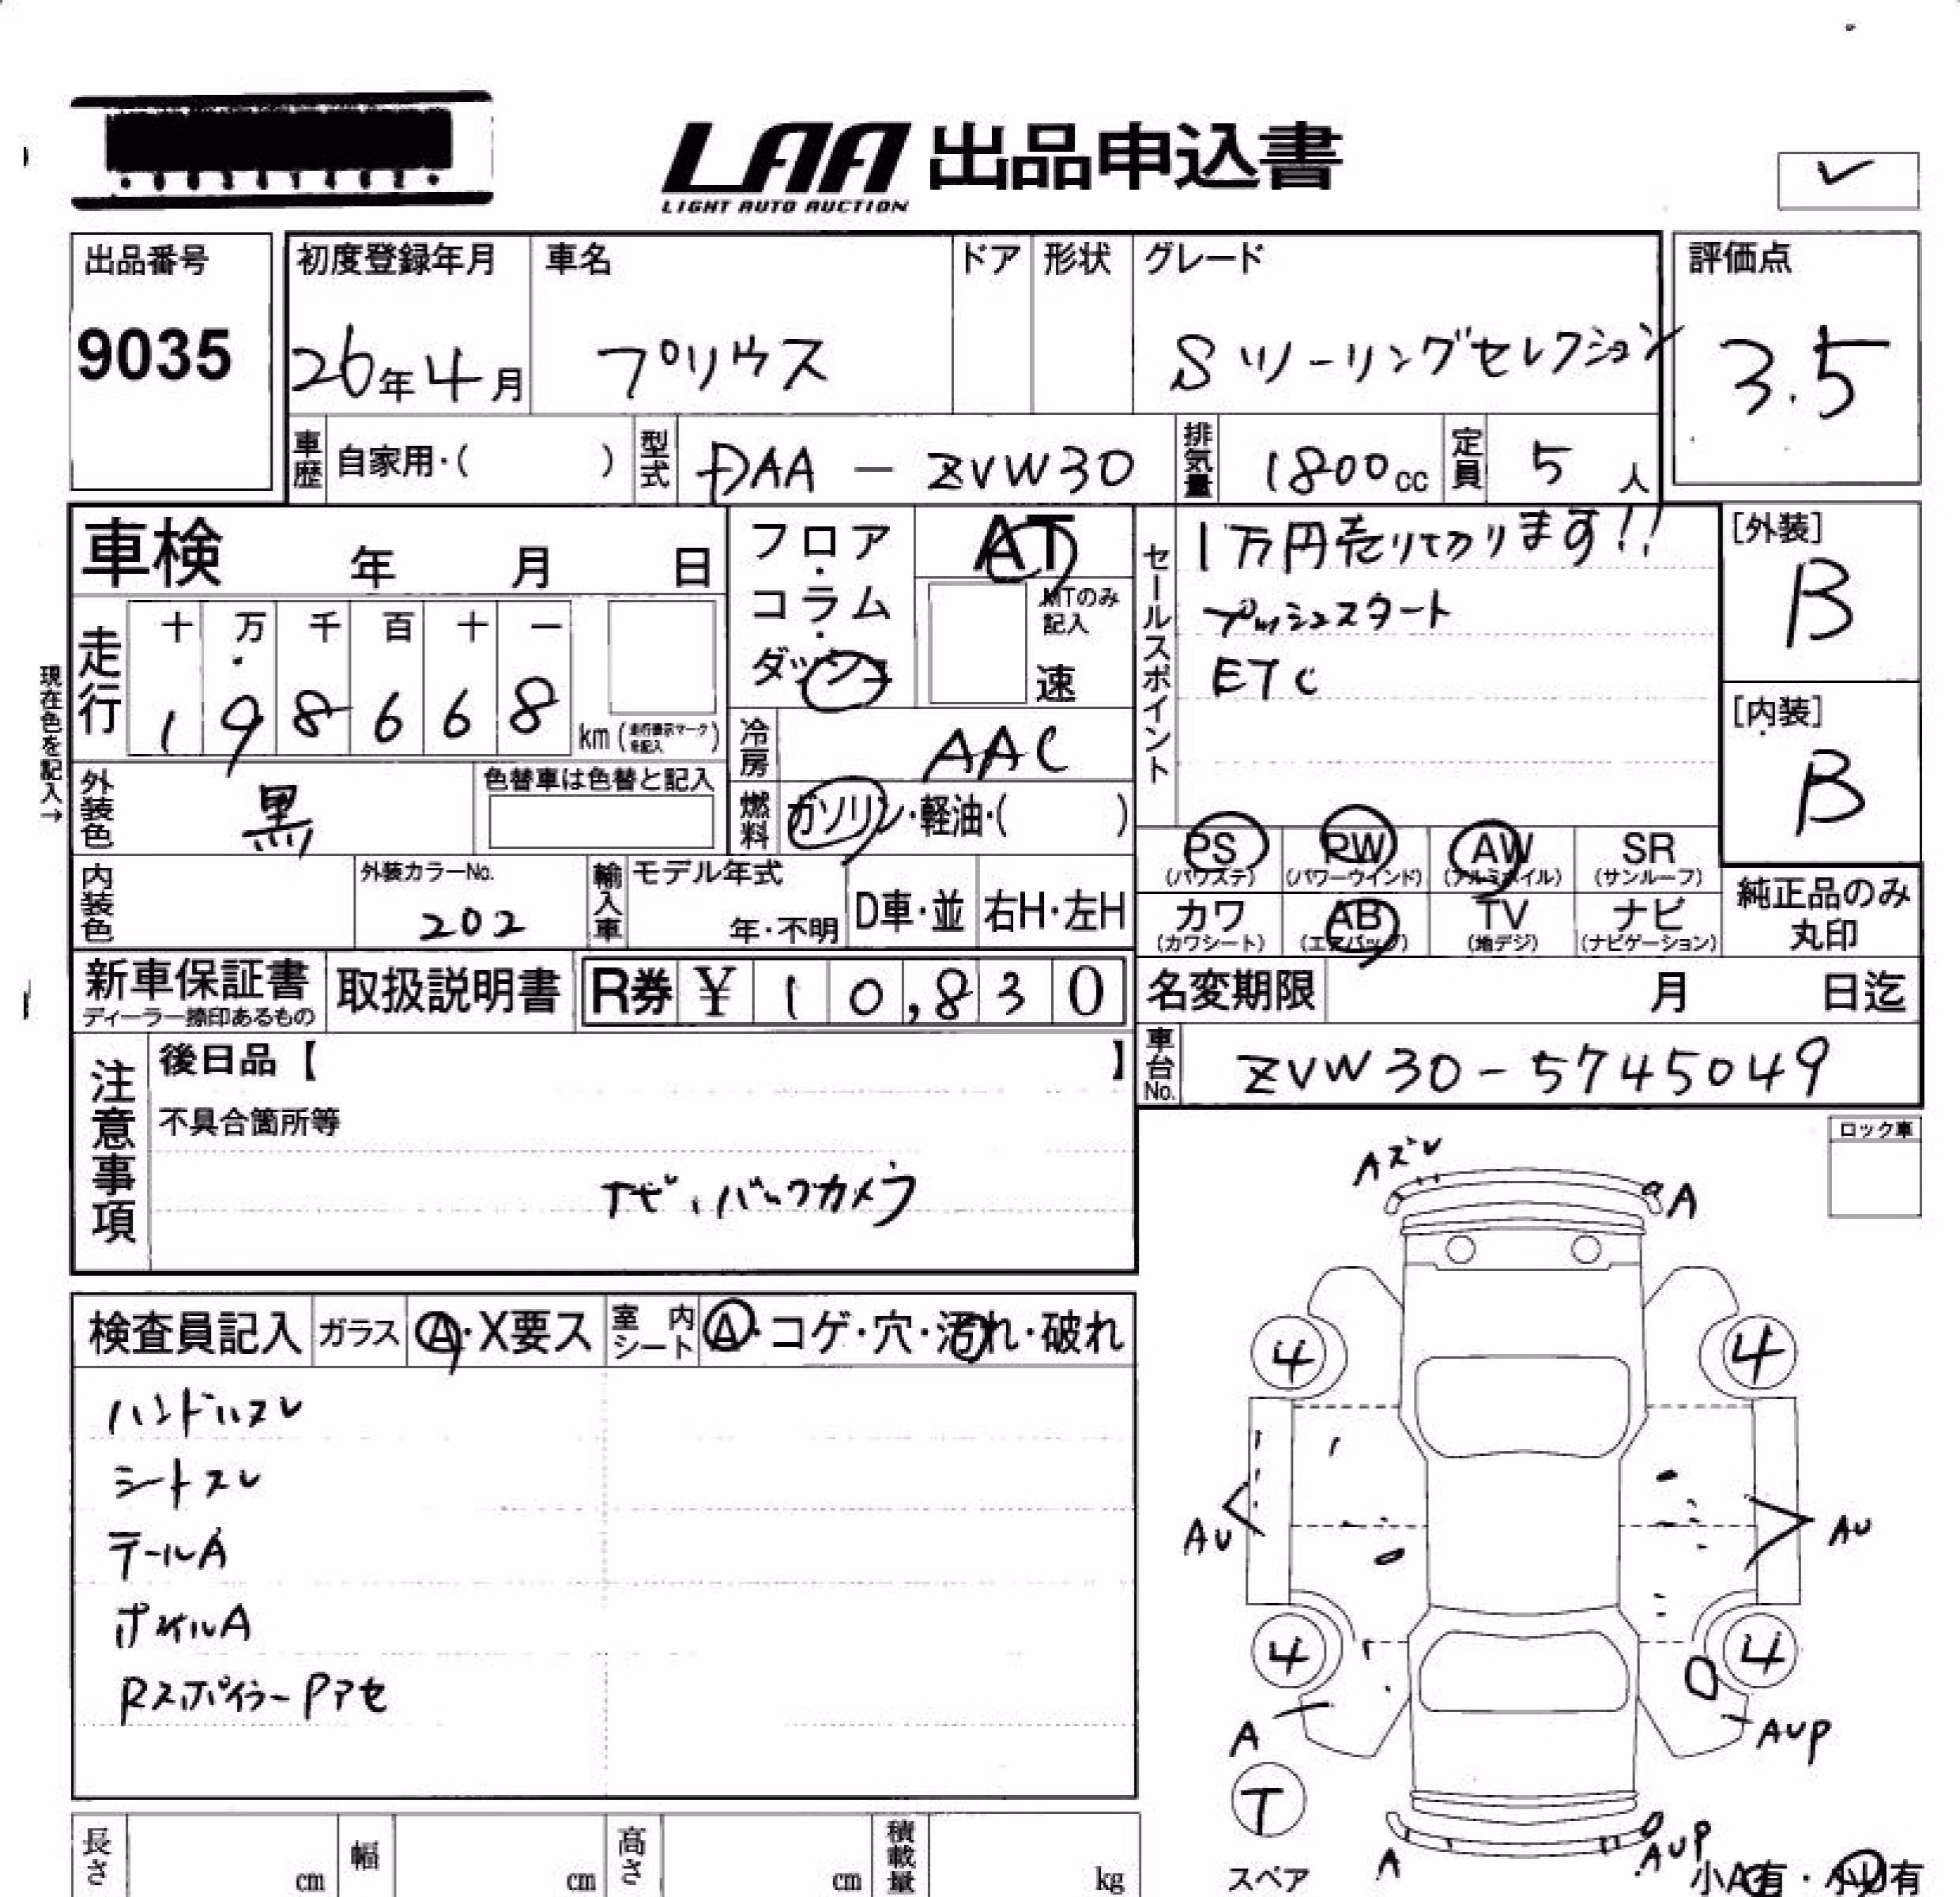 LAA 出品申込書
LIGHT AUTO AUCTION
出品番号
9035
初度登録年月 車名 ドア 形状 グレード
26年4月 プリウス Sツーリングセレクション
評価点
3.5
車歴 自家用・( ) 型式 DAA - ZVW30 排気量 1800cc 定員 5人
車検 年 月 日
現在色を記入→
走行 十 万 千 百 十 一
1 9 8 6 6 8 km (走行表示マークを記入)
フロア・コラム・ダッシュ
AT
MTのみ記入
速
冷房 AAC
燃料 ガソリン・軽油・( )
セールスポイント
1万円売り切ります!!
プッシュスタート
ETC
[外装]
B
[内装]
B
外装色 黒 色替車は色替と記入
内装色 外装カラーNo. 202
輸入車 モデル年式 年・不明 D車・並 右H・左H
PS (パワステ) PW (パワーウインド) AW (アルミホイル) SR (サンルーフ)
カワ (カワシート) AB (エアバッグ) TV (地デジ) ナビ (ナビゲーション)
純正品のみ丸印
新車保証書 ディーラー捺印あるもの 取扱説明書 R券 ¥ 10,830
名変期限 月 日迄
車台No. ZVW30-5745049
注意事項
後日品【 】
不具合箇所等
ナビ、バックカメラ
ロック車
検査員記入 ガラス A・X要ス 室内シート A・コゲ・穴・汚れ・破れ
ハンドルスレ
シートスレ
テールA
ホイルA
RスポイラーPアセ
Aズレ
A
4 4
AU AU
4 4
A AUP
T
スペア
A AUP
小A有・小U有
長さ cm 幅 cm 高さ cm 積載量 kg